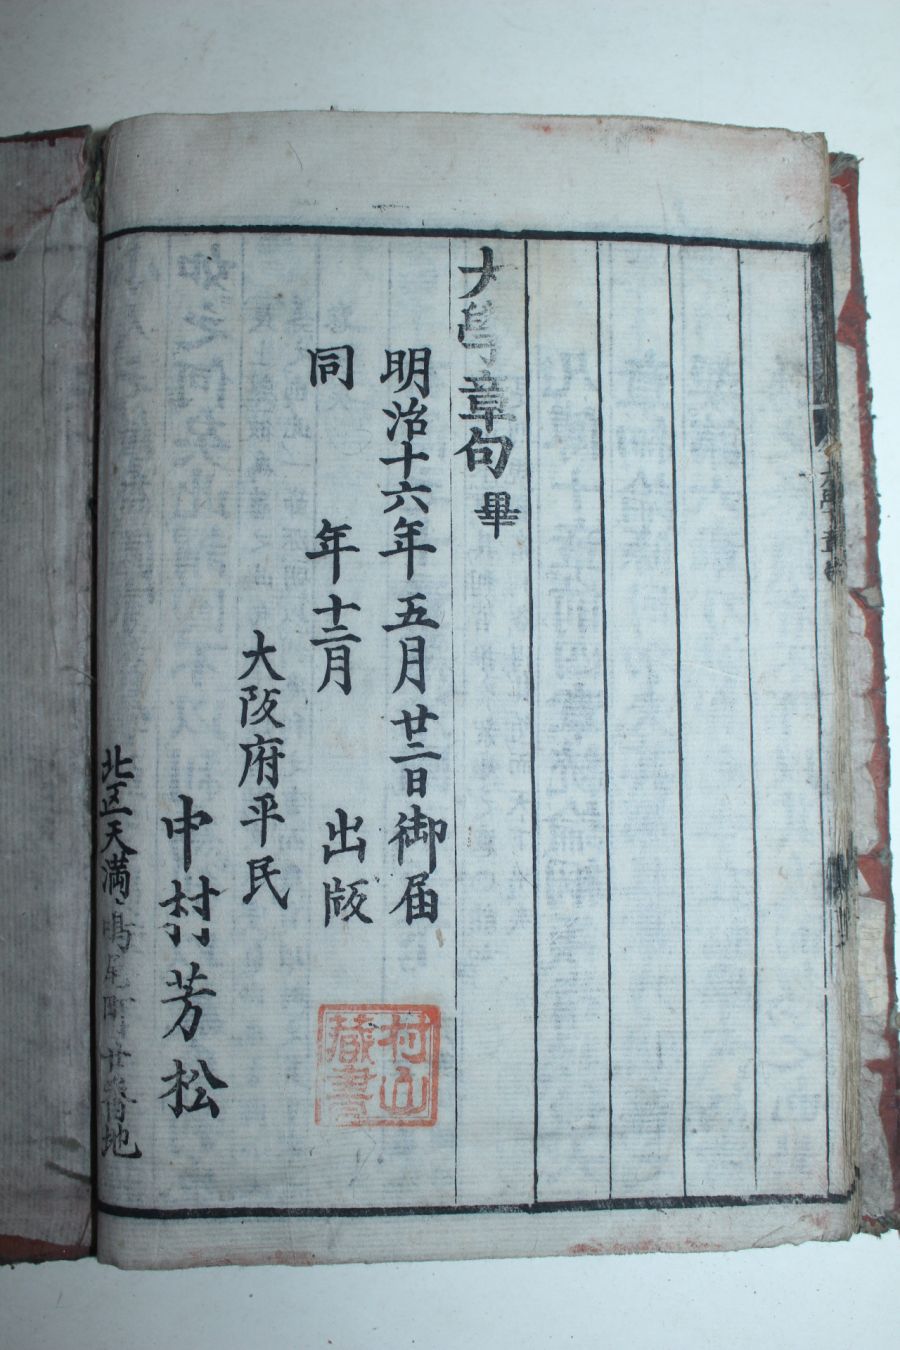 大學章句
大學章句畢
明治十六年五月廿二日御届
同年十二月出版
大阪府平民
中村芳松
北區天満鳴尾町廿番地
村山
藏書